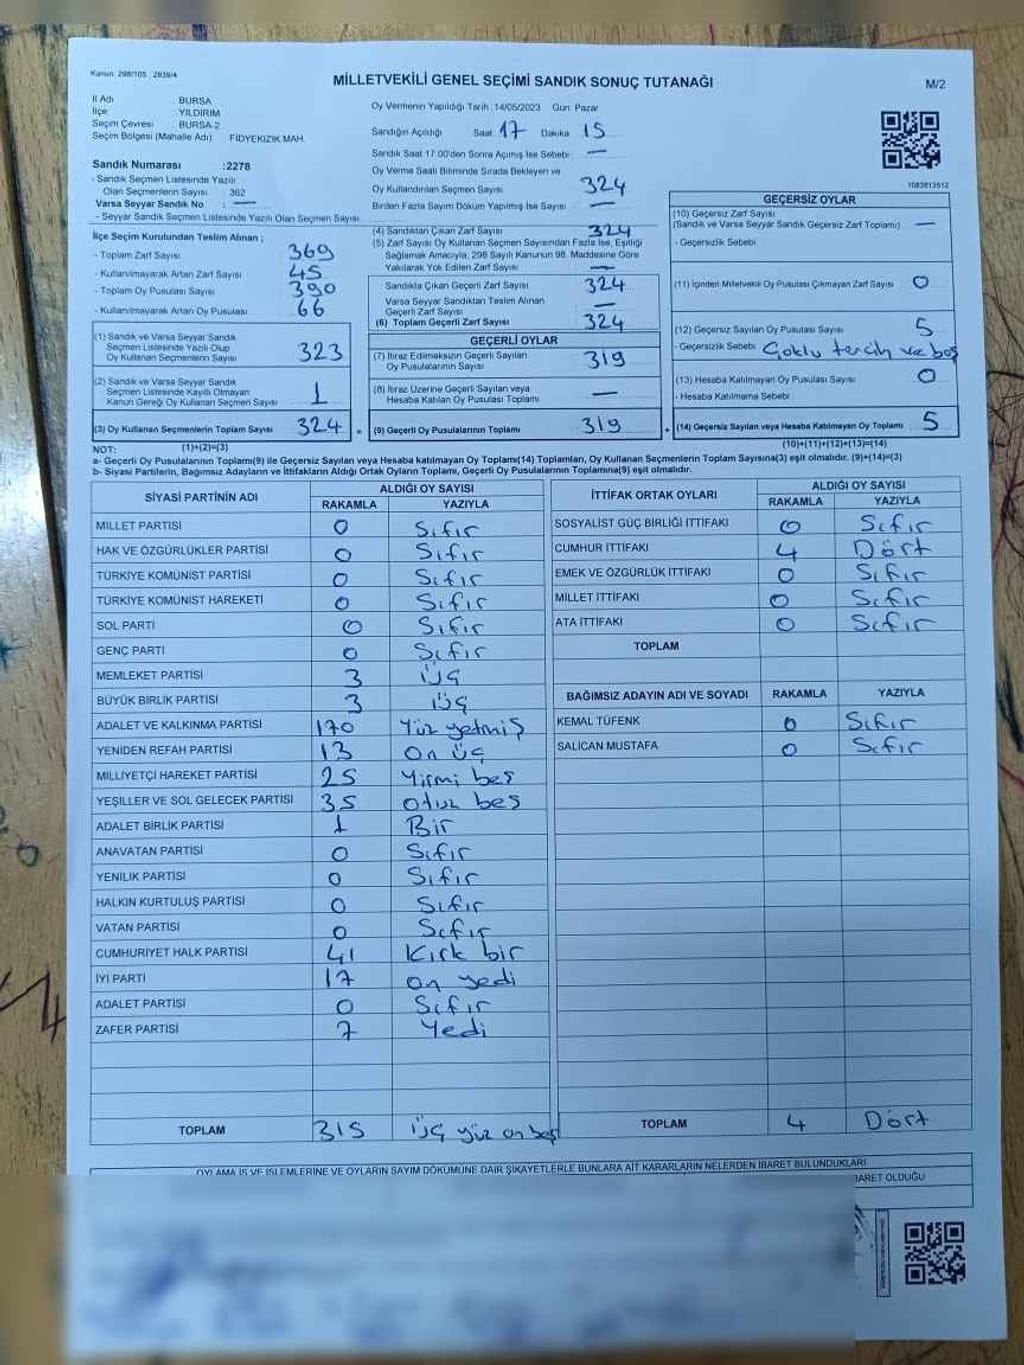 Kanun: 298/105, 2839/4
MİLLETVEKİLİ GENEL SEÇİMİ SANDIK SONUÇ TUTANAĞI
M/2
İl Adı : BURSA
İlçe : YILDIRIM
Seçim Çevresi : BURSA-2
Seçim Bölgesi (Mahalle Adı) FİDYEKIZIK MAH.
Sandık Numarası :2278
- Sandık Seçmen Listesinde Yazılı
Olan Seçmenlerin Sayısı : 362
Varsa Seyyar Sandık No : —
- Seyyar Sandık Seçmen Listesinde Yazılı Olan Seçmen Sayısı:
Oy Vermenin Yapıldığı Tarih :14/05/2023 Gün: Pazar
Sandığın Açıldığı Saat 17 Dakika 15
Sandık Saat 17:00'den Sonra Açımış İse Sebebi —
Oy Verme Saati Bitiminde Sırada Bekleyen ve
Oy Kullandırılan Seçmen Sayısı 324
Birden Fazla Sayım Döküm Yapılmış İse Sayısı —
1083813512
İlçe Seçim Kurulundan Teslim Alınan ;
- Toplam Zarf Sayısı 369
- Kullanılmayarak Artan Zarf Sayısı 45
- Toplam Oy Pusulası Sayısı 390
- Kullanılmayarak Artan Oy Pusulası 66
(1) Sandık ve Varsa Seyyar Sandık
Seçmen Listesinde Yazılı Olup
Oy Kullanan Seçmenlerin Sayısı 323
(2) Sandık ve Varsa Seyyar Sandık
Seçmen Listesinde Kayıtlı Olmayan
Kanun Gereği Oy Kullanan Seçmen Sayısı 1
(3) Oy Kullanan Seçmenlerin Toplam Sayısı 324 =
(1)+(2)=(3)
(4) Sandıktan Çıkan Zarf Sayısı 324
(5) Zarf Sayısı Oy Kullanan Seçmen Sayısından Fazla İse, Eşitliği
Sağlamak Amacıyla, 298 Sayılı Kanunun 98. Maddesine Göre
Yakılarak Yok Edilen Zarf Sayısı —
Sandıkla Çıkan Geçerli Zarf Sayısı 324
Varsa Seyyar Sandıktan Teslim Alınan
Geçerli Zarf Sayısı —
(6) Toplam Geçerli Zarf Sayısı 324
GEÇERLİ OYLAR
(7) İtiraz Edilmeksizin Geçerli Sayılan
Oy Pusulalarının Sayısı 319
(8) İtiraz Üzerine Geçerli Sayılan veya
Hesaba Katılan Oy Pusulası Toplamı —
(9) Geçerli Oy Pusulalarının Toplamı 319 +
GEÇERSİZ OYLAR
(10) Geçersiz Zarf Sayısı
(Sandık ve Varsa Seyyar Sandık Geçersiz Zarf Toplamı) —
- Geçersizlik Sebebi
(11) İçinden Milletvekili Oy Pusulası Çıkmayan Zarf Sayısı 0
(12) Geçersiz Sayılan Oy Pusulası Sayısı 5
- Geçersizlik Sebebi Çoklu tercih ve boş
(13) Hesaba Katılmayan Oy Pusulası Sayısı 0
- Hesaba Katılmama Sebebi
(14) Geçersiz Sayılan veya Hesaba Katılmayan Oy Toplamı 5
(10)+(11)+(12)+(13)=(14)
NOT:
a- Geçerli Oy Pusulalarının Toplamı(9) ile Geçersiz Sayılan veya Hesaba katılmayan Oy Toplamı(14) Toplamları, Oy Kullanan Seçmenlerin Toplam Sayısına(3) eşit olmalıdır. (9)+(14)=(3)
b- Siyasi Partilerin, Bağımsız Adayların ve İttifakların Aldığı Ortak Oyların Toplamı, Geçerli Oy Pusulalarının Toplamına(9) eşit olmalıdır.
SİYASİ PARTİNİN ADI ALDIĞI OY SAYISI
RAKAMLA YAZIYLA
MİLLET PARTİSİ 0 Sıfır
HAK VE ÖZGÜRLÜKLER PARTİSİ 0 Sıfır
TÜRKİYE KOMÜNİST PARTİSİ 0 Sıfır
TÜRKİYE KOMÜNİST HAREKETİ 0 Sıfır
SOL PARTİ 0 Sıfır
GENÇ PARTİ 0 Sıfır
MEMLEKET PARTİSİ 3 üç
BÜYÜK BİRLİK PARTİSİ 3 üç
ADALET VE KALKINMA PARTİSİ 170 Yüz yetmiş
YENİDEN REFAH PARTİSİ 13 On üç
MİLLİYETÇİ HAREKET PARTİSİ 25 Yirmi beş
YEŞİLLER VE SOL GELECEK PARTİSİ 35 otuz beş
ADALET BİRLİK PARTİSİ 1 Bir
ANAVATAN PARTİSİ 0 Sıfır
YENİLİK PARTİSİ 0 Sıfır
HALKIN KURTULUŞ PARTİSİ 0 Sıfır
VATAN PARTİSİ 0 Sıfır
CUMHURİYET HALK PARTİSİ 41 Kırk bir
İYİ PARTİ 17 on yedi
ADALET PARTİSİ 0 Sıfır
ZAFER PARTİSİ 7 Yedi
TOPLAM 315 üç yüz on beş
İTTİFAK ORTAK OYLARI ALDIĞI OY SAYISI
RAKAMLA YAZIYLA
SOSYALİST GÜÇ BİRLİĞİ İTTİFAKI 0 Sıfır
CUMHUR İTTİFAKI 4 Dört
EMEK VE ÖZGÜRLÜK İTTİFAKI 0 Sıfır
MİLLET İTTİFAKI 0 Sıfır
ATA İTTİFAKI 0 Sıfır
TOPLAM
BAĞIMSIZ ADAYIN ADI VE SOYADI RAKAMLA YAZIYLA
KEMAL TÜFENK 0 Sıfır
SALİCAN MUSTAFA 0 Sıfır
TOPLAM 4 Dört
OYLAMA İŞ VE İŞLEMLERİNE VE OYLARIN SAYIM DÖKÜMÜNE DAİR ŞİKAYETLERLE BUNLARA AİT KARARLARIN NELERDEN İBARET BULUNDUKLARI
İBARET OLDUĞU